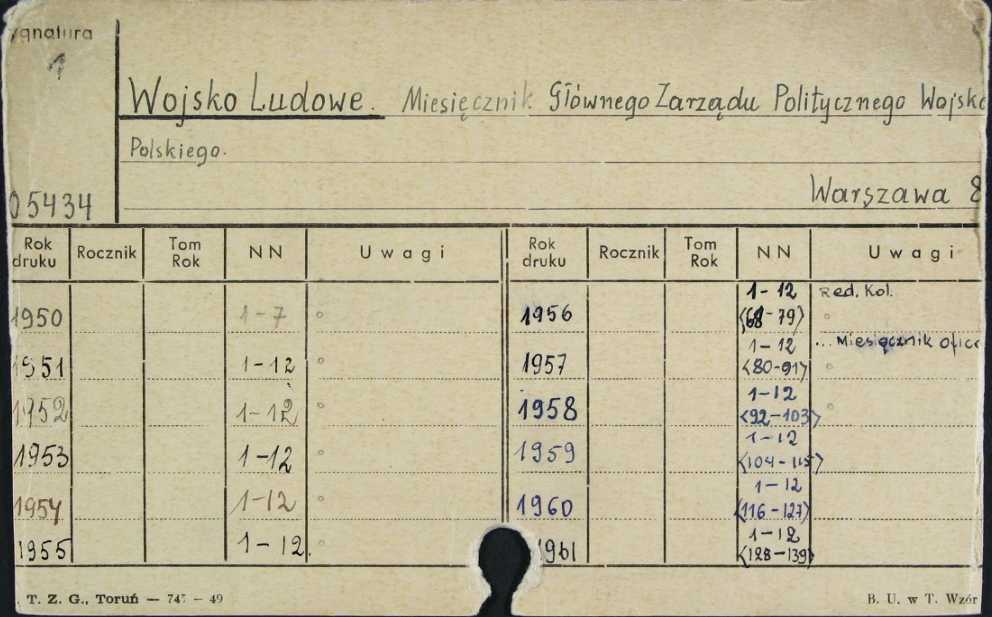 ygnatura
Wojsko Ludowe. Miesięcznik Głównego Zarządu Politycznego Wojska
Polskiego.
Warszawa 8
05434
Rok druku Rocznik Tom Rok NN Uwagi Rok druku Rocznik Tom Rok NN Uwagi
1950 1-7 1956 1-12 <68-79> Red. Kol.
1951 1-12 1957 1-12 <80-91> ... Miesięcznik oficer
1952 1-12 1958 1-12 <92-103>
1953 1-12 1959 1-12 <104-115>
1954 1-12 1960 1-12 <116-127>
1955 1-12. 1961 1-12 <128-139>
. T. Z. G., Toruń — 747 — 49
B. U. w T. Wzór